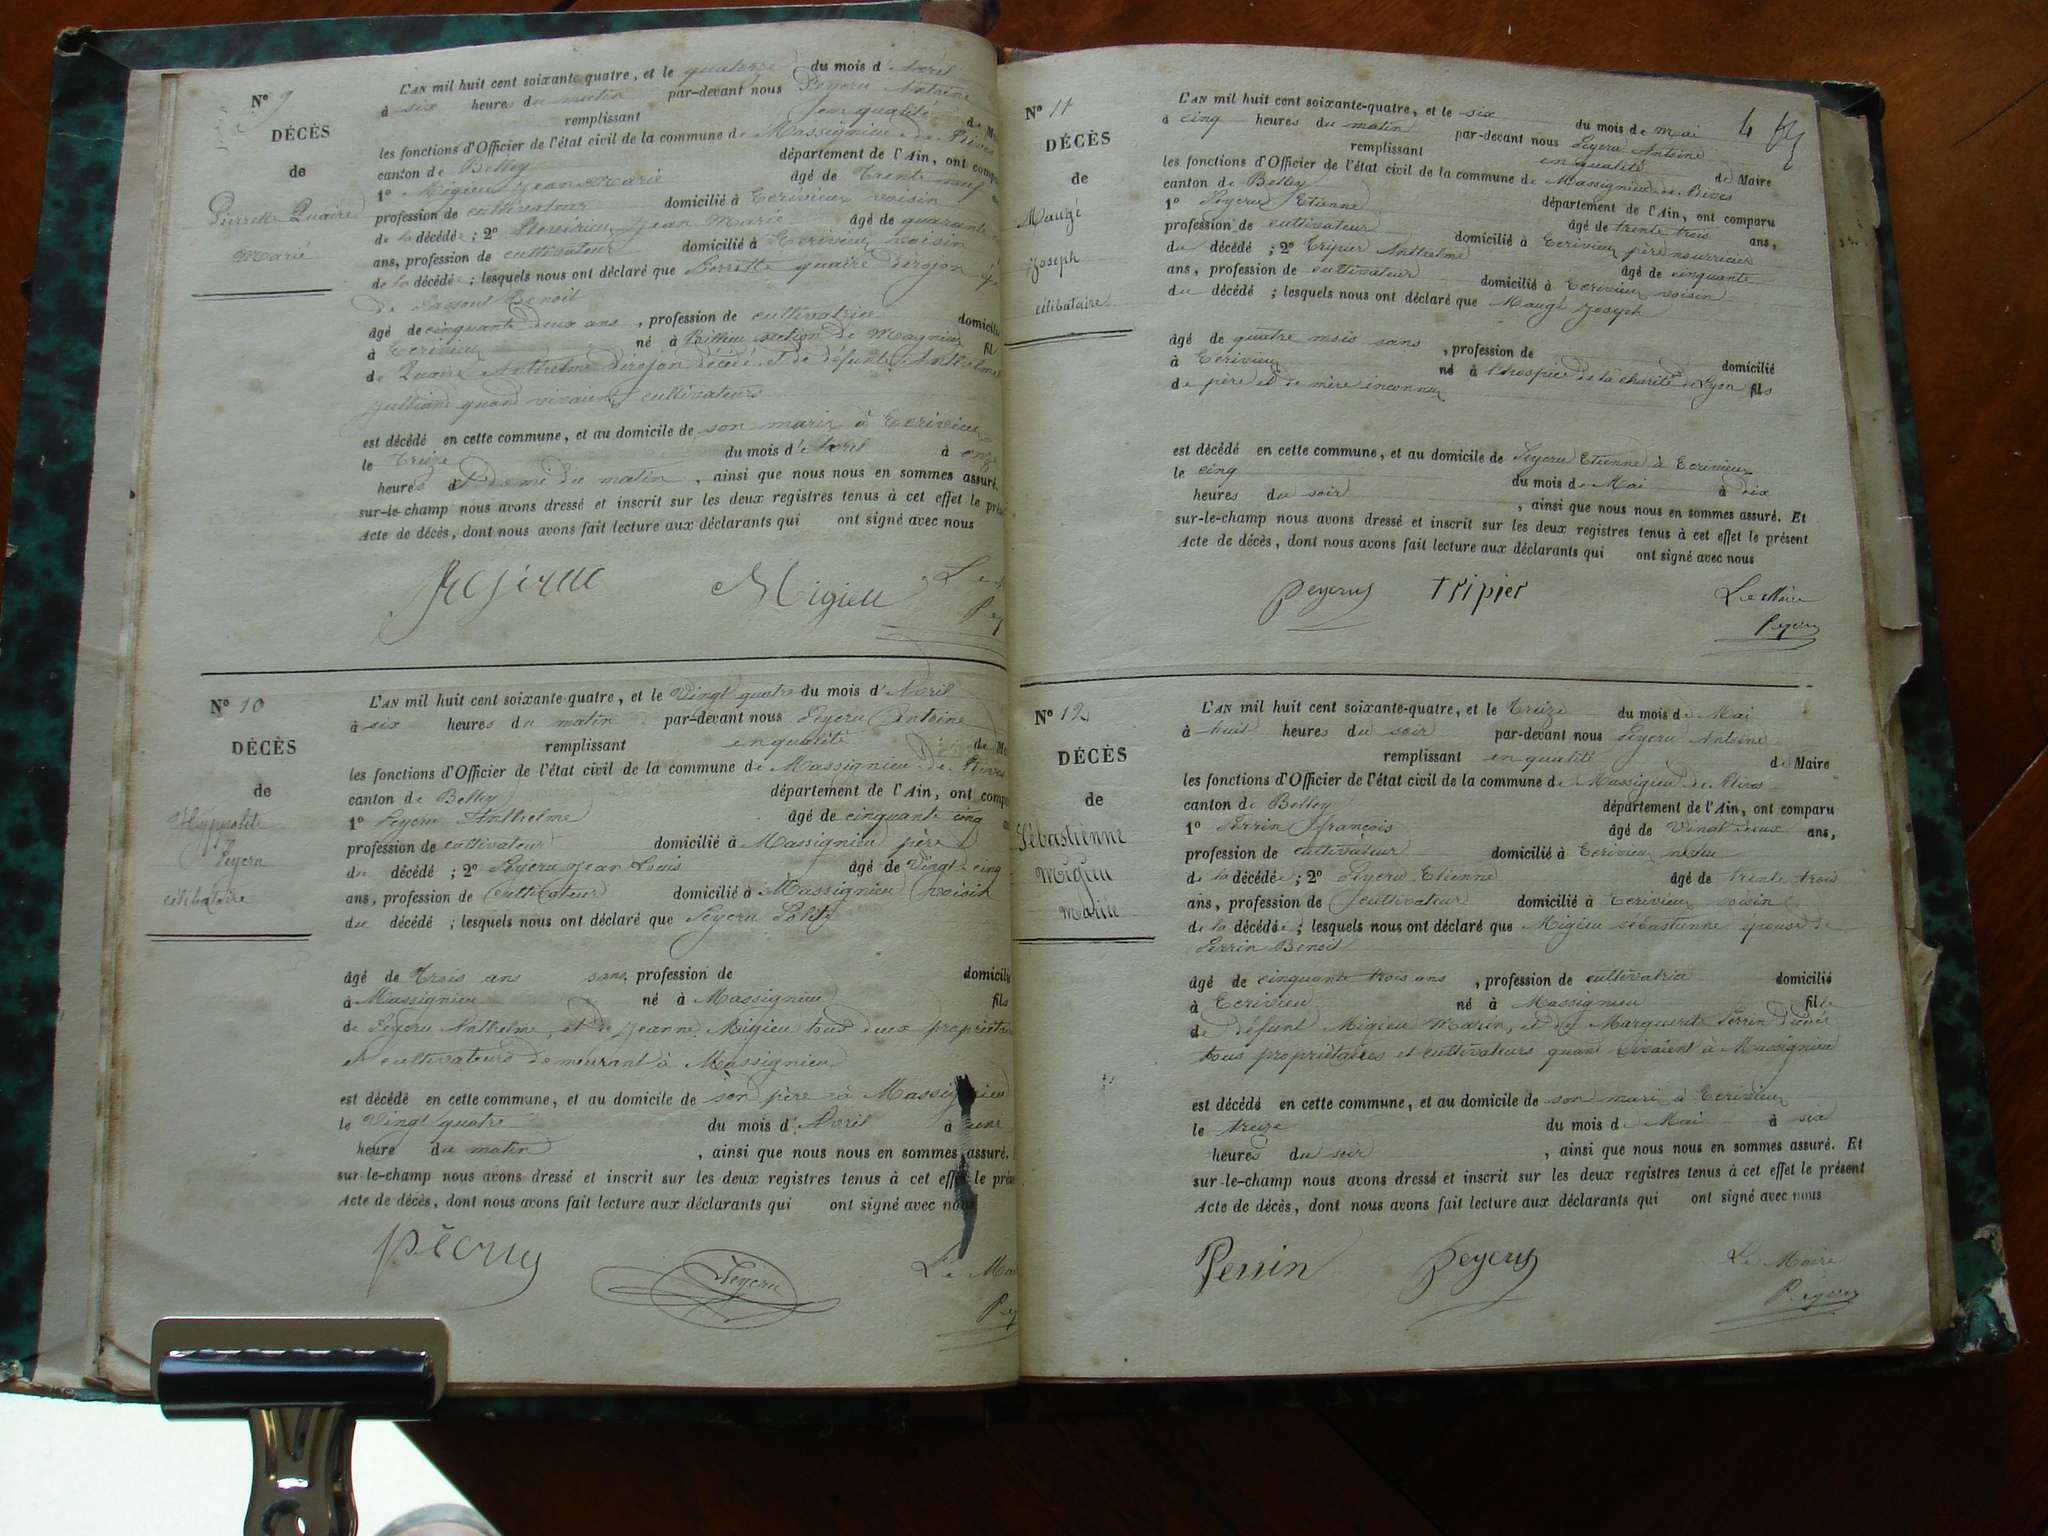 N° 9
DÉCÈS
de
Pierrette Quaire
Marié
L'AN mil huit cent soixante-quatre, et le quatorze du mois d'Avril
à six heures du matin par-devant nous Peyeru Antoine
remplissant en qualité de
les fonctions d'Officier de l'état civil de la commune de Massignieu de Rives
canton de Belley département de l'Ain, ont comp
1° Migieu Jean Marie âgé de trente neuf
profession de cultivateur domicilié à Ecrivieux voisin
de la décédée ; 2° Jean Marie âgé de quarante
ans, profession de cultivateur domicilié à Ecrivieux voisin
de la décédée ; lesquels nous ont déclaré que Perrette quaire dirojon
de Benoit
âgé de cinquante deux ans , profession de cultivatrice domicilié
à Ecrivieux né à section de Magnieu fil
de Quaire Anthelme dirojon décédé et de défunte Anthelme
quand vivaient cultivateurs
est décédé en cette commune, et au domicile de son marie à Ecrivieux
le treize du mois d'Avril à onze
heures du matin , ainsi que nous nous en sommes assuré.
sur-le-champ nous avons dressé et inscrit sur les deux registres tenus à cet effet le prés
Acte de décès, dont nous avons fait lecture aux déclarants qui ont signé avec nous
Migieu
N° 10
DÉCÈS
de
Hyppolite
Peyeru
célibataire
L'AN mil huit cent soixante-quatre, et le Vingt quatre du mois d'Avril
à six heures du matin par-devant nous Peyeru Antoine
remplissant en qualité de
les fonctions d'Officier de l'état civil de la commune de Massignieu de Rives
canton de Belley département de l'Ain, ont compa
1° Peyeru Anthelme âgé de cinquante cinq
profession de cultivateur domicilié à Massignieu père
du décédé ; 2° Peyeru Jean Louis âgé de Vingt cinq
ans, profession de Cultivateur domicilié à Massignieu voisin
du décédé ; lesquels nous ont déclaré que Peyeru Polite
âgé de trois ans sans profession de domicilié
à Massignieu né à Massignieu fils
de Peyeru Anthelme, et de Jeanne Migieu tous deux propriétaire
et cultivateurs demeurant à Massignieu
est décédé en cette commune, et au domicile de son père à Massignieu
le Vingt quatre du mois d'Avril à une
heure du matin , ainsi que nous nous en sommes assuré.
sur-le-champ nous avons dressé et inscrit sur les deux registres tenus à cet effet le prés
Acte de décès, dont nous avons fait lecture aux déclarants qui ont signé avec nous
Peyeru
Le Mai
N° 11
4
DÉCÈS
de
Maugé
Joseph
célibataire
L'AN mil huit cent soixante-quatre, et le six du mois de mai
à cinq heures du matin par-devant nous Peyeru Antoine
remplissant en qualité de Maire
les fonctions d'Officier de l'état civil de la commune de Massignieu de Rives
canton de Belley département de l'Ain, ont comparu
1° Peyeru Etienne âgé de trente trois ans,
profession de cultivateur domicilié à Ecrivieux père nourricier
du décédé ; 2° Tripier Anthelme âgé de cinquante
ans, profession de cultivateur domicilié à Ecrivieux voisin
du décédé ; lesquels nous ont déclaré que Maugé Joseph
âgé de quatre mois sans , profession de domicilié
à Ecrivieux né à l'hospice de la charité de Lyon fils
de père et de mère inconnu
est décédé en cette commune, et au domicile de Peyeru Etienne à Ecrivieux
le cinq du mois de Mai à dix
heures du soir , ainsi que nous nous en sommes assuré. Et
sur-le-champ nous avons dressé et inscrit sur les deux registres tenus à cet effet le présent
Acte de décès, dont nous avons fait lecture aux déclarants qui ont signé avec nous
peyeru Tripier Le Maire
Peyeru
N° 12
DÉCÈS
de
Sébastienne
Migieu
Mariée
L'AN mil huit cent soixante-quatre, et le treize du mois de Mai
à huit heures du soir par-devant nous Peyeru Antoine
remplissant en qualité de Maire
les fonctions d'Officier de l'état civil de la commune de Massigieu de Rives
canton de Belley département de l'Ain, ont comparu
1° Perrin françois âgé de Vingt deux ans,
profession de cultivateur domicilié à Ecrivieux neveu
de la décédée ; 2° Peyeru Etienne âgé de trente trois
ans, profession de cultivateur domicilié à Ecrivieux voisin
de la décédée ; lesquels nous ont déclaré que Migieu sébastienne épouse de
Perrin Benoit
âgé de cinquante trois ans , profession de cultivatrice domicilié
à Ecrivieu né à Massignieu fille
de défunt Migieu Marin, et de Marguerite Perrin
tous propriétaires et cultivateurs quand vivaient à Massignieu
est décédé en cette commune, et au domicile de son marie à Ecrivieux
le treize du mois de Mai à six
heures du soir , ainsi que nous nous en sommes assuré. Et
sur-le-champ nous avons dressé et inscrit sur les deux registres tenus à cet effet le présent
Acte de décès, dont nous avons fait lecture aux déclarants qui ont signé avec nous
Perrin peyeru Le Maire
Peyeru